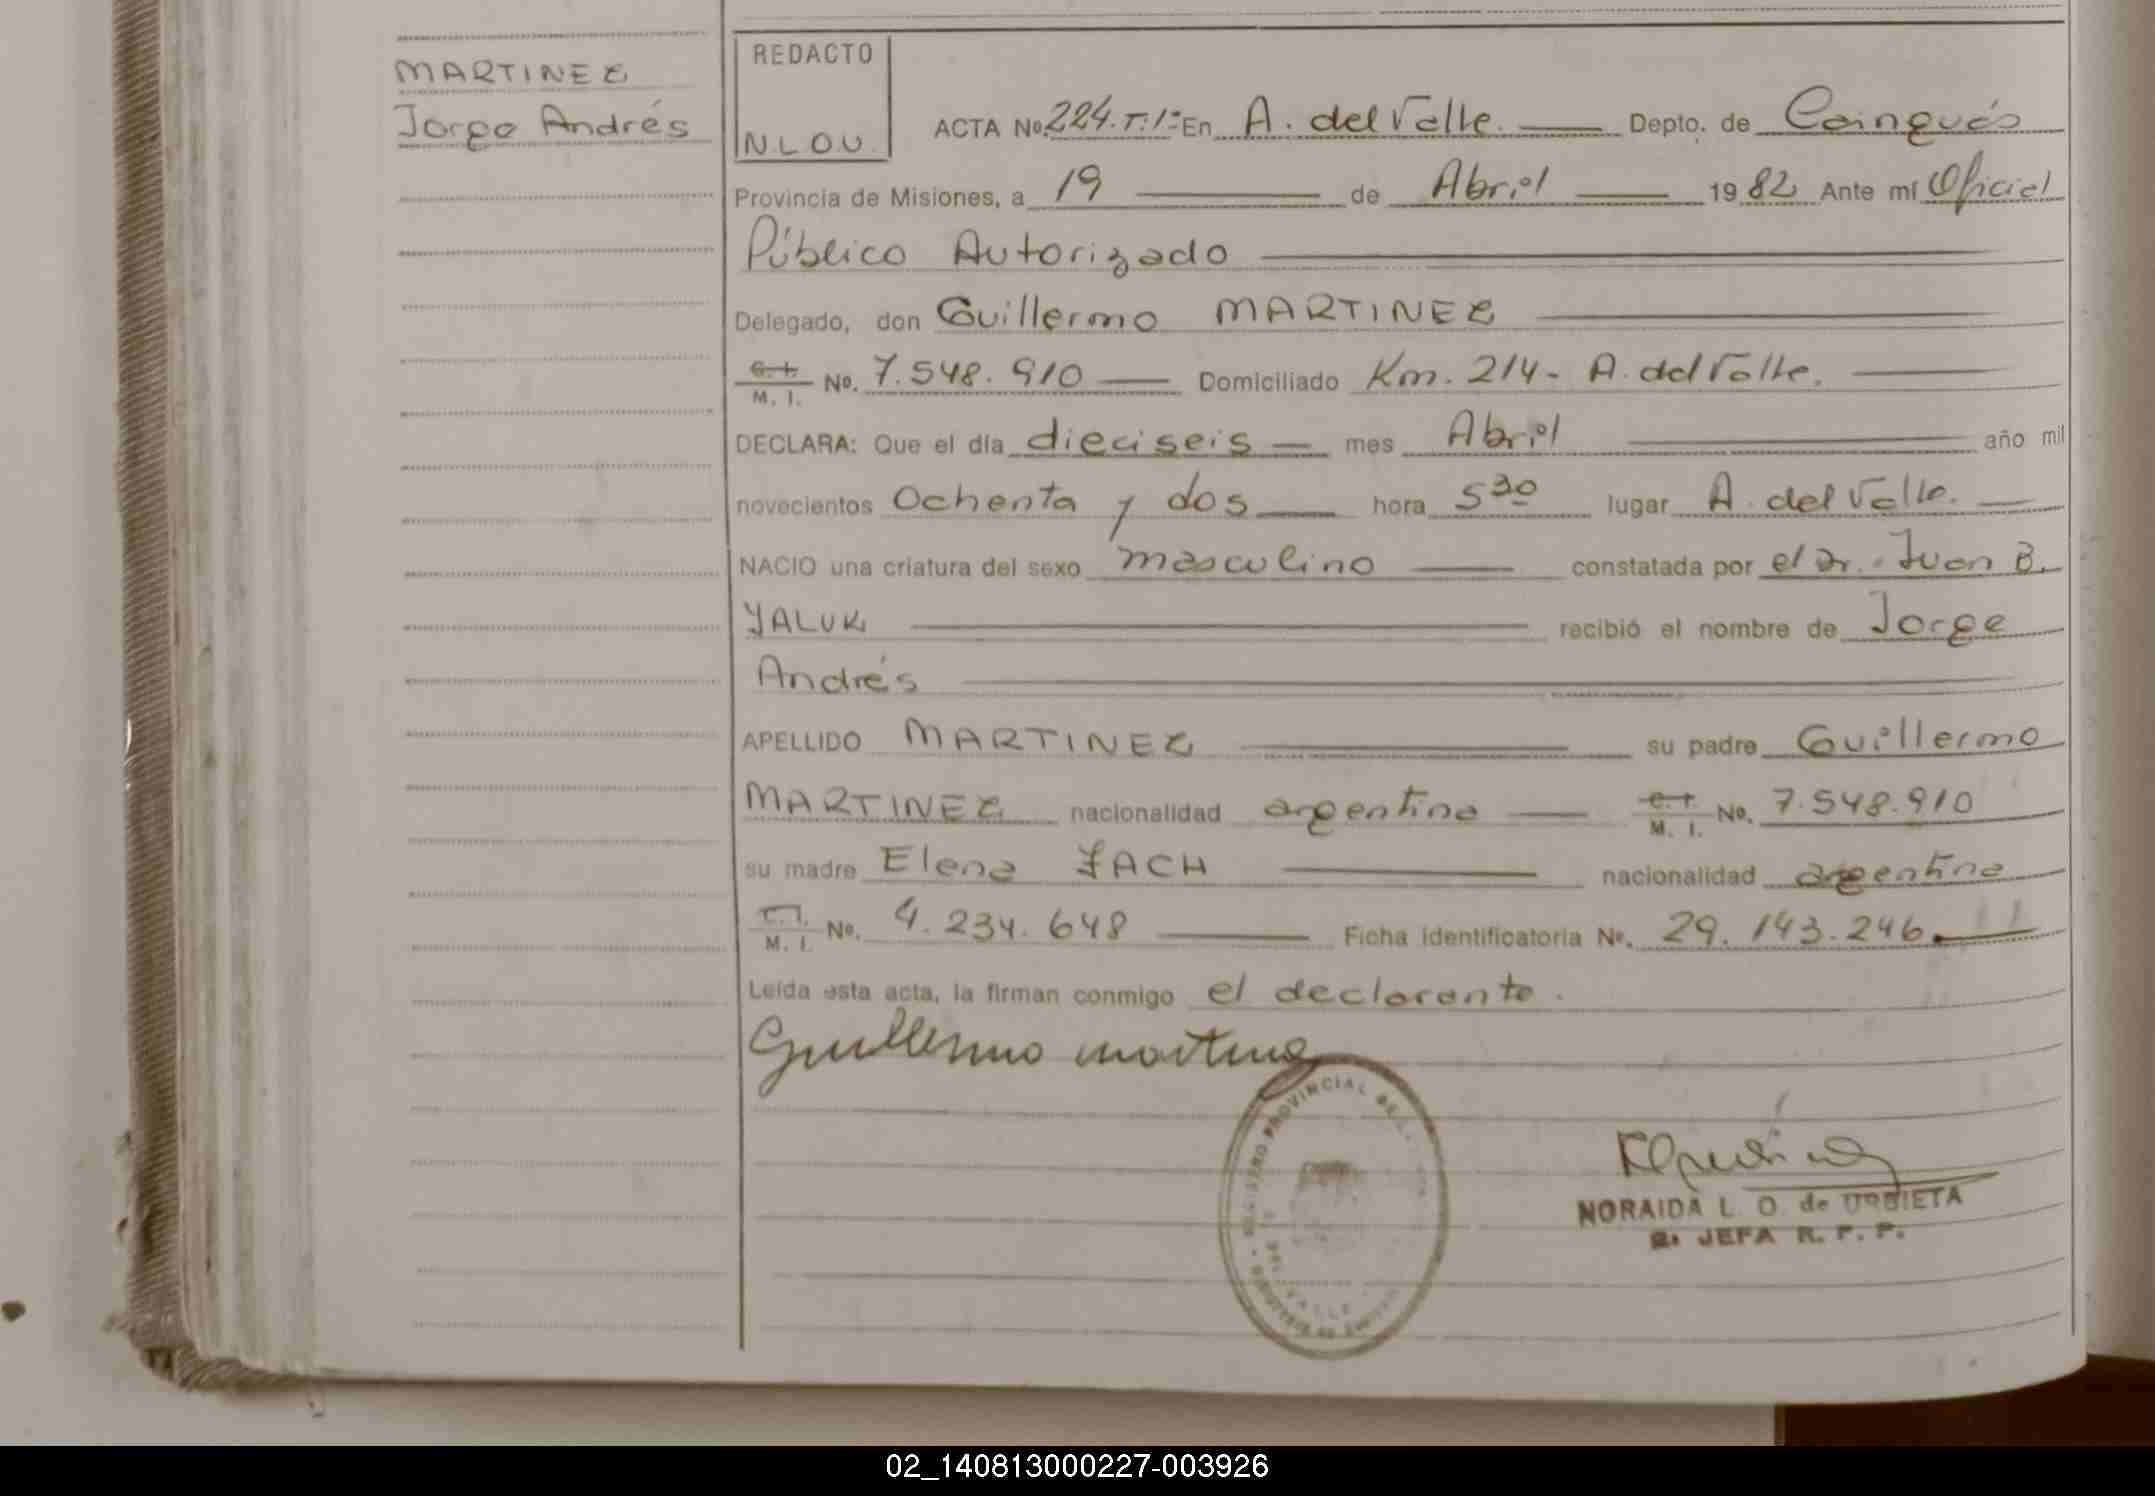 MARTINEZ
Jorge Andrés
REDACTO
N.L.O.U.
ACTA No. 224.T.1º En A. del Valle. Depto. de Cainguás
Provincia de Misiones, a 19 de Abril 1982 Ante mí Oficial
Público Autorizado
Delegado, don Guillermo MARTINEZ
C.I. M. I. No. 7.548.910 Domiciliado Km. 214- A. del Valle.
DECLARA: Que el día dieciseis mes Abril año mil
novecientos Ochenta y dos hora 5 30 lugar A. del Valle.
NACIO una criatura del sexo masculino constatada por el Dr. Juan B.
YALUK recibió el nombre de Jorge
Andrés
APELLIDO MARTINEZ su padre Guillermo
MARTINEZ nacionalidad argentina C.I. M. I. No. 7.548.910
su madre Elena ZACH nacionalidad argentina
C.I. M. I. No. 4.234.648 Ficha identificatoria No. 29.143.246
Leída esta acta, la firman conmigo el declarante.
Guillermo martinez
PROVINCIAL DE
DEL VALLE
NORAIDA L. O. de URBIETA
JEFA R. P. P.
02_140813000227-003926